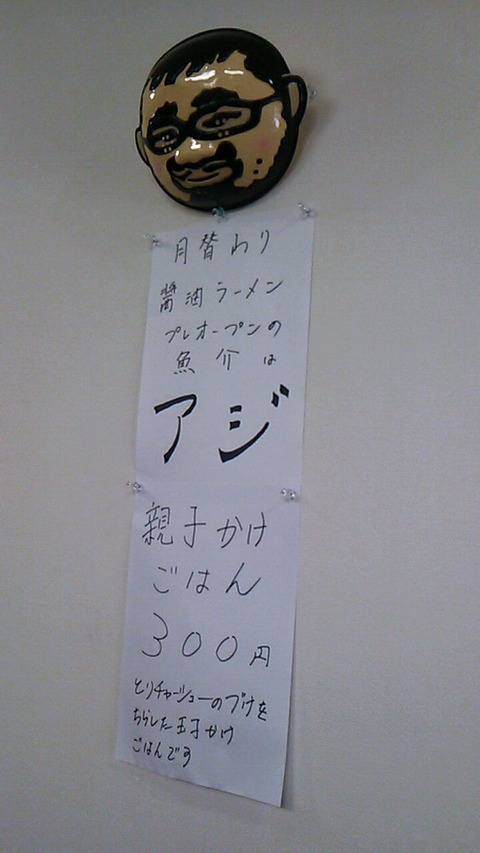 月替わり
醤油ラーメン
プレオープンの
魚介は
アジ
親子かけ
ごはん
300円
とりチャーシューのづけを
ちらした玉子かけ
ごはんです